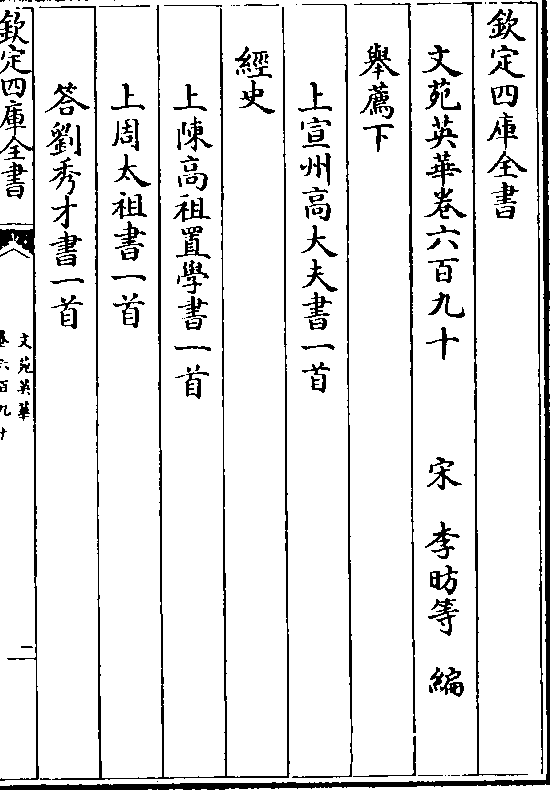 欽定四庫全書
文苑英華卷六百九十　宋　李昉等　編
舉薦下
上宣州高大夫書一首
經史
上陳高祖置學書一首
上周太祖書一首
答劉秀才書一首
欽定四庫全書
文苑英華
卷六百九十
二